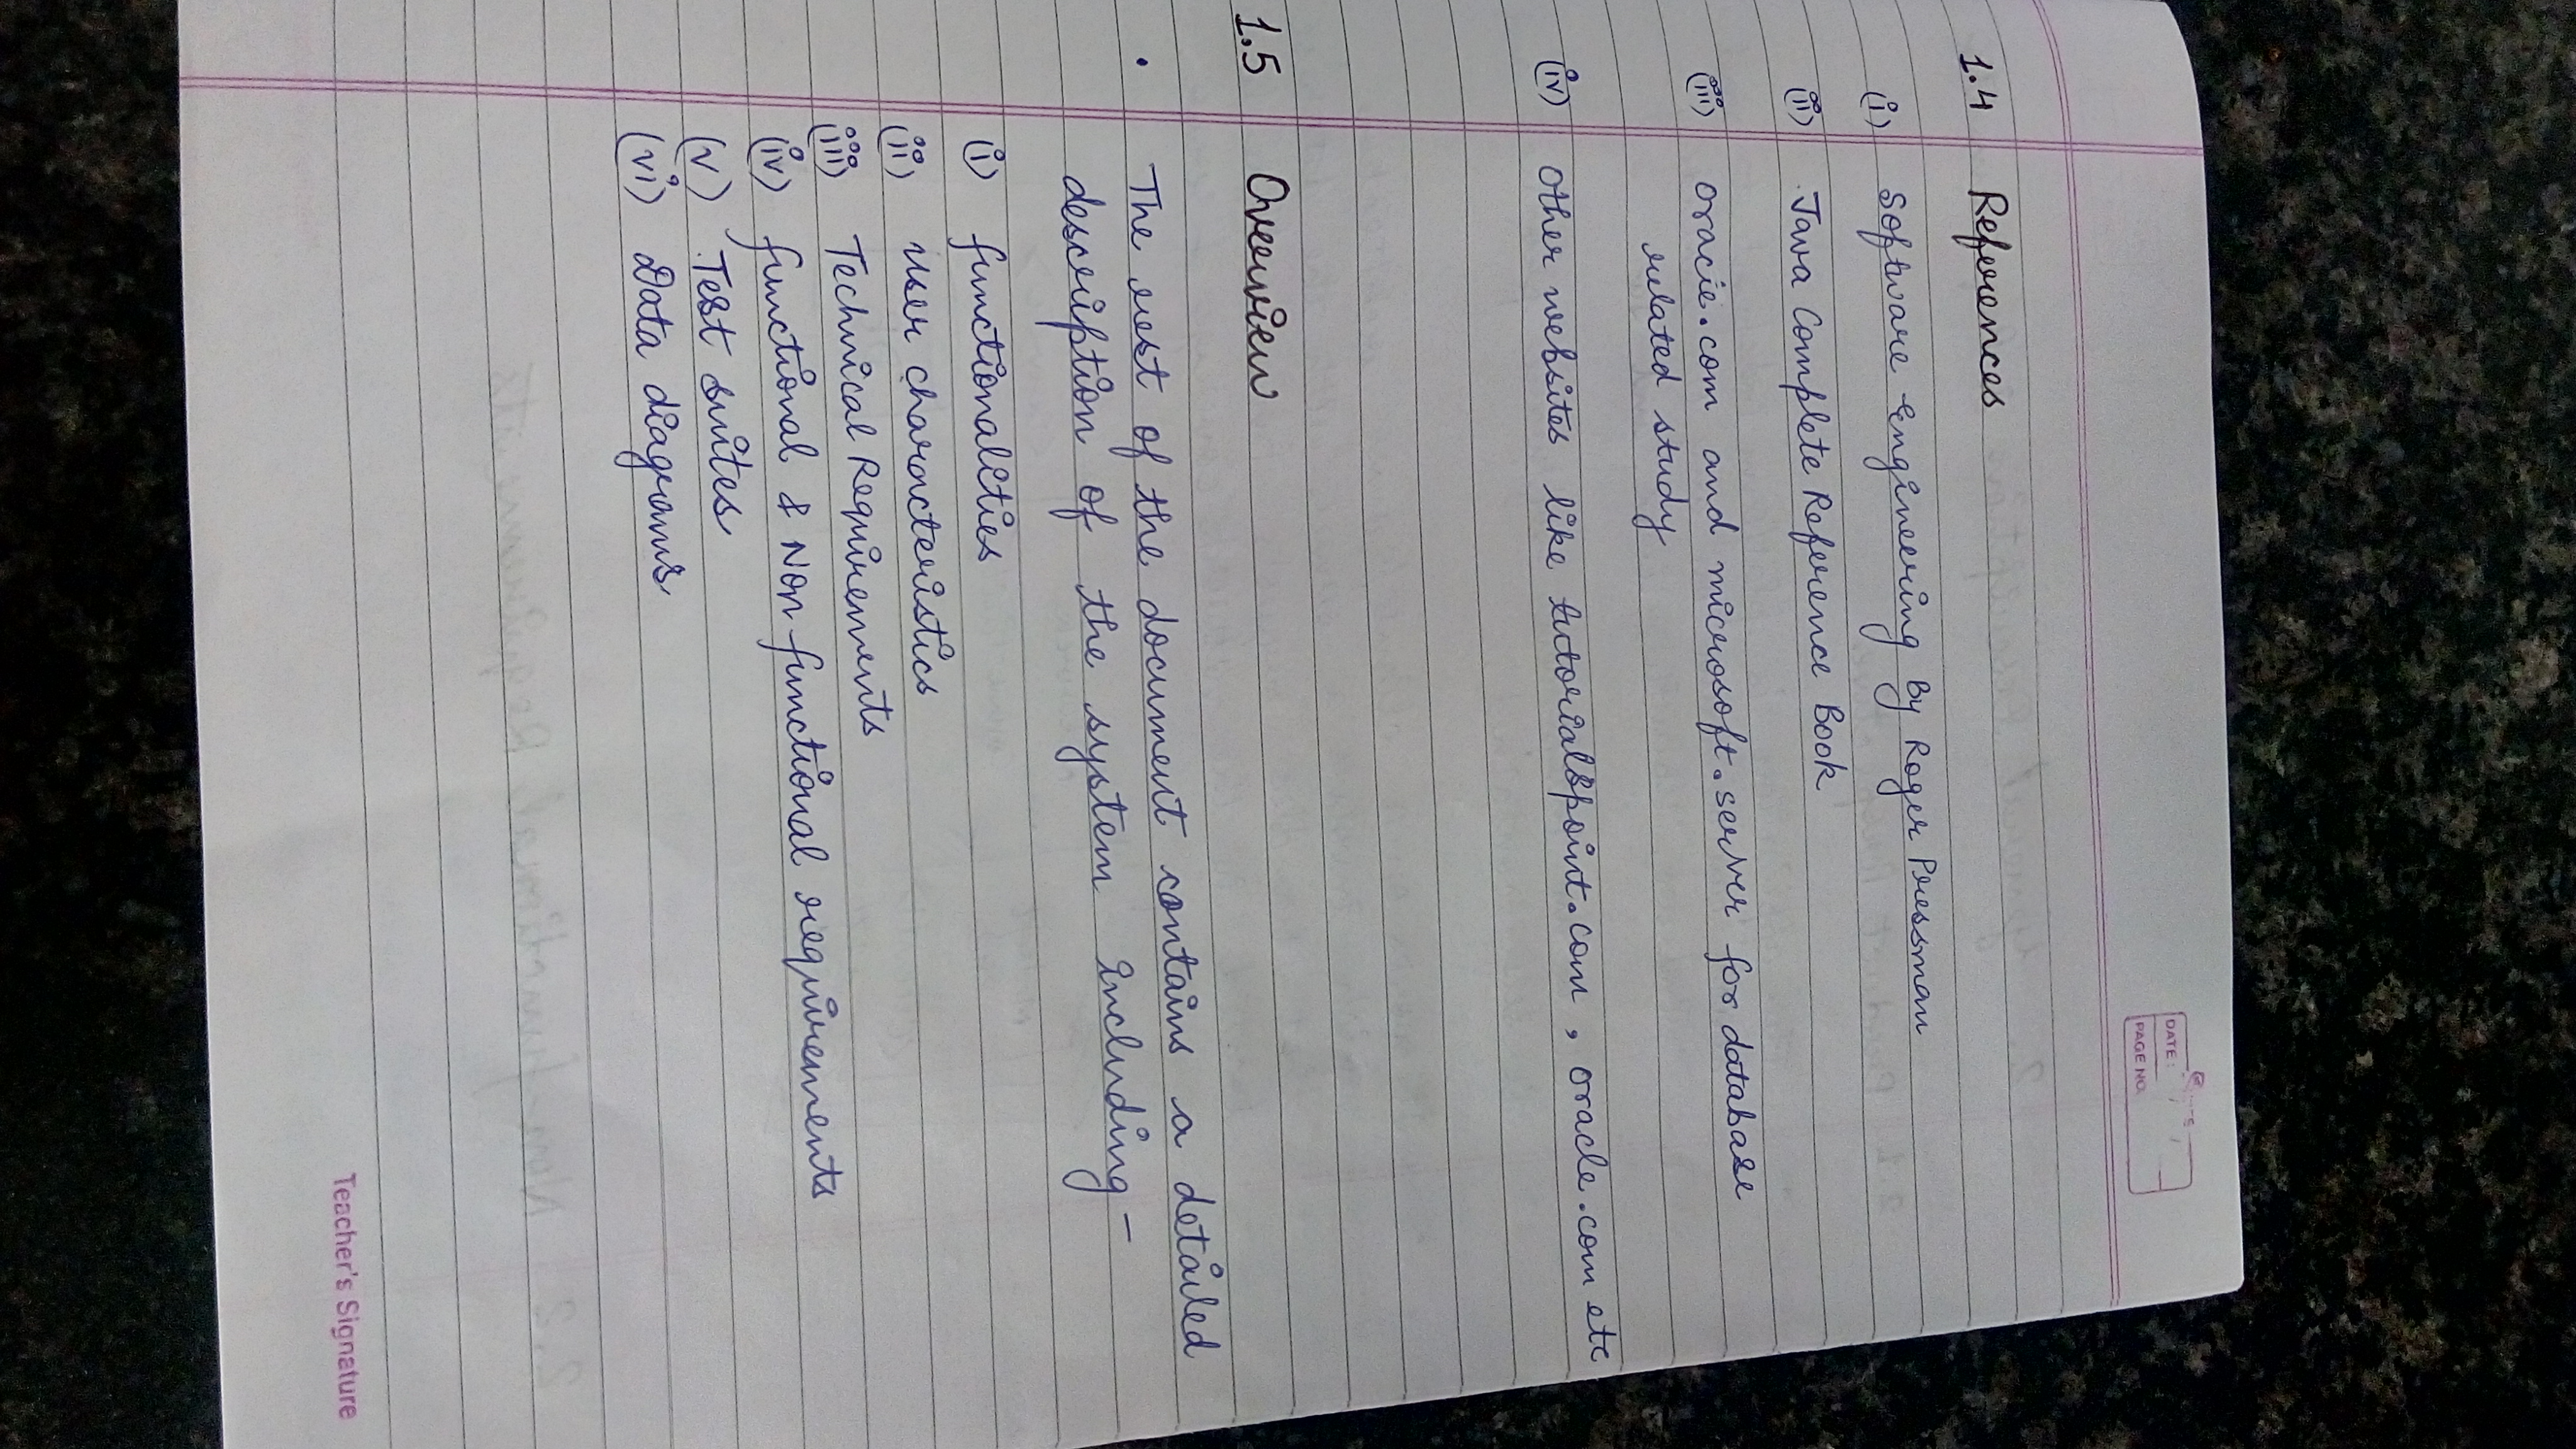 DATE:
PAGE NO.
1.4 References
(i) Software Engineering By Roger Pressman
(ii) Java Complete Reference Book
(iii) oracie.com and microsoft.server for database
related study
(iv) Other websites like tutorialspoint.com , oracle.com etc
1.5 Overview
• The rest of the document contains a detailed
description of the system including -
(i) functionalities
(ii) User characteristics
(iii) Technical Requirements
(iv) functional & Non functional requirements
(v) Test suites
(vi) Data diagrams
Teacher's Signature